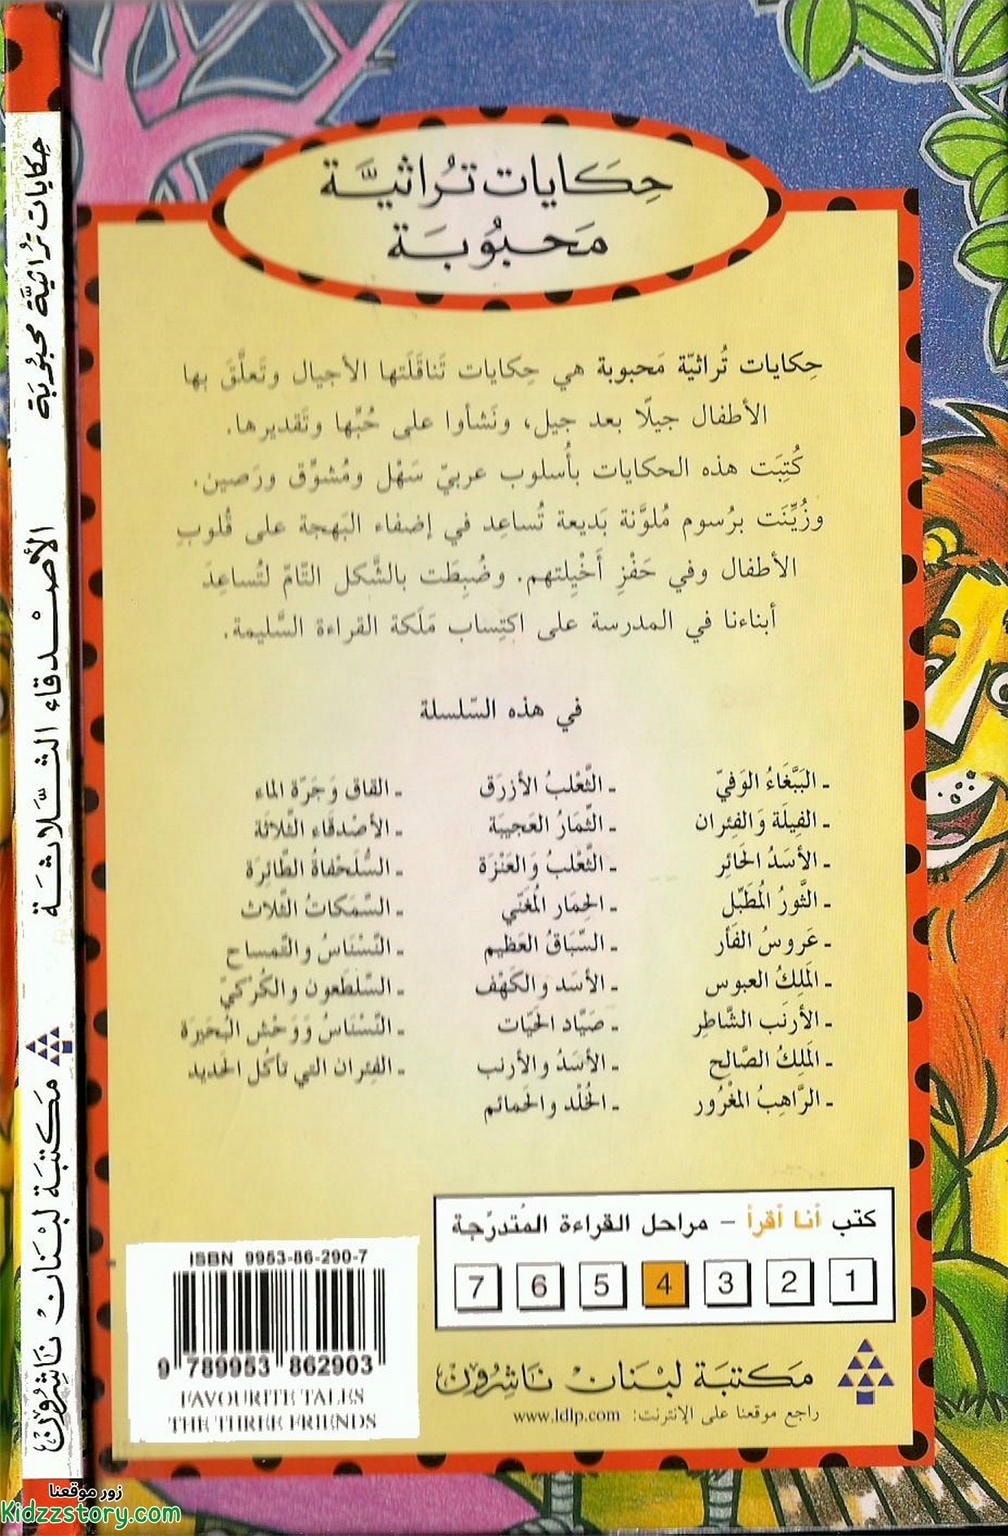 حِكَايات تُراثيَّة
مَحبُوُبَة
حِكايات تُراثيّة مَحبوبة هي حِكايات تَناقَلَتها الأجيال وتَعلَّقَ بها
الأطفال جيلًا بعد جيل، ونَشأوا على حُبِّها وتَقديرها.
كُتِبَت هذه الحكايات بأُسلوب عربيّ سَهْل ومُشوِّق ورَصين.
وزُيِّنَت برُسوم مُلوَّنة بَديعة تُساعِد في إضفاء البَهجة على قُلوبِ
الأطفال وفي حَفْزِ أَخْيِلتهم. وضُبِطَت بالشَّكل التّامّ لتُساعِدَ
أبناءنا في المدرسة على اكتِساب مَلَكة القراءة السَّليمة.
في هذه السِّلسلة
- البَبَّغَاءُ الوَفيّ
- الفِيلَة وَالفِئران
- الأسَدُ الحَائِر
- الثَّورُ المُطَبِّل
- عَروسُ الفَأر
- المَلِكُ العبوس
- الأرنَب الشَّاطِر
- المَلِكُ الصَّالِح
- الرَّاهِبُ المغْرُور
- الثَّعْلبُ الأزرَق
- الثِّمَارُ العَجيبَة
- الثَّعْلبُ وَالعَنْزَة
- الحِمَار المُغَنّي
- السِّبَاقُ العَظِيم
- الأسَد والكَهْف
- صَيَّاد الحَيَّات
- الأسَدُ والأرنب
- الخُلْد والحَمائم
- القاق وَجَرّة الماء
- الأصْدقَاء الثّلاثَة
- السُّلَحْفاةُ الطَّائِرَة
- السَّمكاتُ الثَّلاث
- النَّسْنَاسُ والتَّمساح
- السَّلطَعون والكُرْكيّ
- النَّسْنَاسُ وَوَحْش البُحَيرَة
- الفِئران التي تأكُل الحَديد
كتب أنا أقرأ – مراحل القراءة المُتدرِّجة
1 2 3 4 5 6 7
مَكتبَة لبْنَان نَاشِرُون
راجع موقعنا على الإنترنت: www.ldlp.com
ISBN 9953-86-290-7
9 789953 862903
FAVOURITE TALES
THE THREE FRIENDS
حِكايات تُراثيَّة محبُوُبَة
الأصْدقاء الثَّلاثَة
مَكتبَة لبْنَان نَاشِرُون
زور موقعنا
Kidzzstory.com